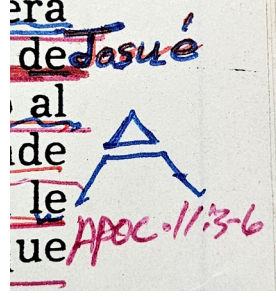 era
de Josué
o al
de
le
ue APOC.11:3-6